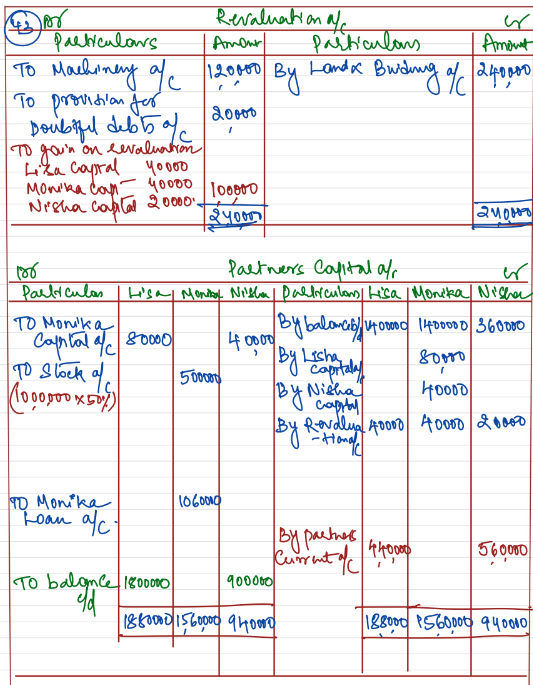 43 Dr Revaluation a/c Cr
Particulars Amount Particulars Amount
To Machinery a/c 120000 By Land & Buiding a/c 240000
To provistian for
Doubtful debts a/c 20000
To gain on revaluation
Lisa capital 40000
Monika cap 40000 100000
Nisha capital 20000
240000 240000
Dr Partners Capital a/c Cr
Particulas Lisa Monika Nisha Particulars Lisa Monika Nisha
To Monika By balance b/d 1400000 1400000 360000
Capital a/c 80000 40000 By Lisha
capital a/c 80000
To Stock a/c 500000 By Nisha
(1000,000 x 50%) capital 40000
By Revalua 40000 40000 20000
-tion a/c
To Monika 1060000
Loan a/c.
By partners
Current a/c 440000 560000
To balance 1800000 900000
c/d
1880000 1560000 940000 188000 1560000 940000